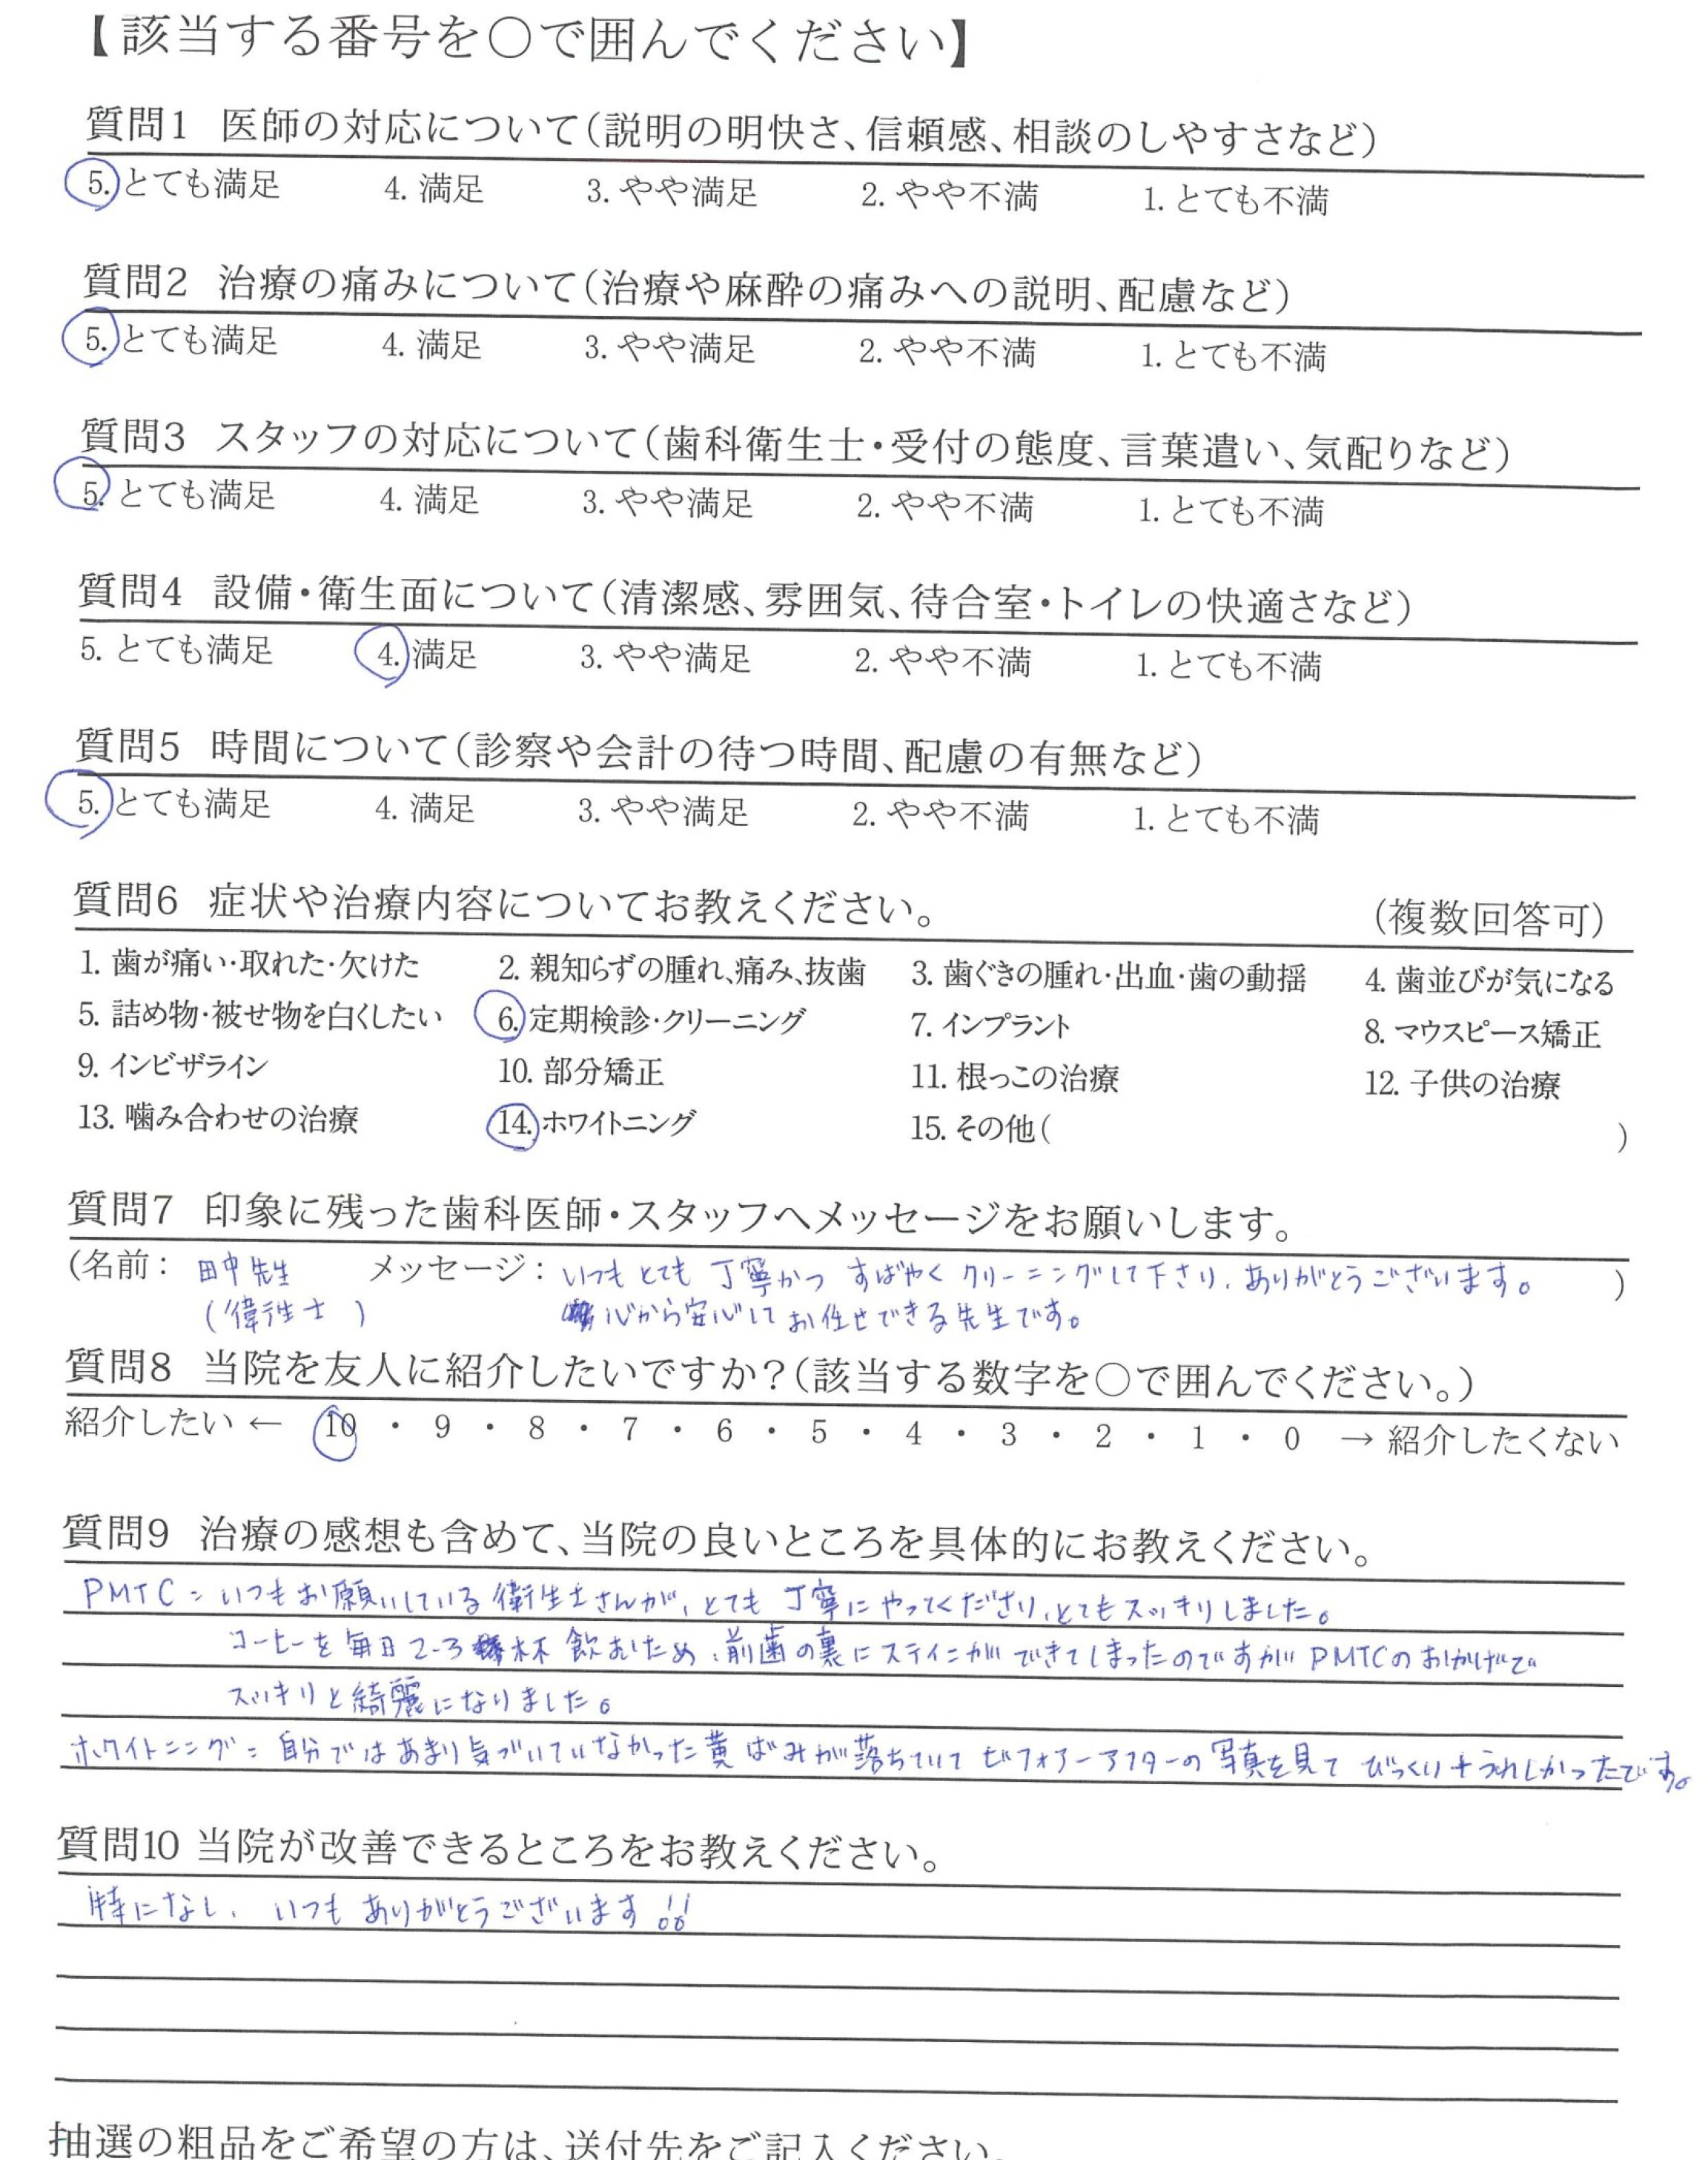 【該当する番号を○で囲んでください】
質問1 医師の対応について(説明の明快さ、信頼感、相談のしやすさなど)
5. とても満足 4. 満足 3. やや満足 2. やや不満 1. とても不満
質問2 治療の痛みについて(治療や麻酔の痛みへの説明、配慮など)
5. とても満足 4. 満足 3. やや満足 2. やや不満 1. とても不満
質問3 スタッフの対応について(歯科衛生士・受付の態度、言葉遣い、気配りなど)
5. とても満足 4. 満足 3. やや満足 2. やや不満 1. とても不満
質問4 設備・衛生面について(清潔感、雰囲気、待合室・トイレの快適さなど)
5. とても満足 4. 満足 3. やや満足 2. やや不満 1. とても不満
質問5 時間について(診察や会計の待つ時間、配慮の有無など)
5. とても満足 4. 満足 3. やや満足 2. やや不満 1. とても不満
質問6 症状や治療内容についてお教えください。 (複数回答可)
1. 歯が痛い・取れた・欠けた 2. 親知らずの腫れ、痛み、抜歯 3. 歯ぐきの腫れ・出血・歯の動揺 4. 歯並びが気になる
5. 詰め物・被せ物を白くしたい 6. 定期検診・クリーニング 7. インプラント 8. マウスピース矯正
9. インビザライン 10. 部分矯正 11. 根っこの治療 12. 子供の治療
13. 噛み合わせの治療 14. ホワイトニング 15. その他( )
質問7 印象に残った歯科医師・スタッフへメッセージをお願いします。
(名前: 田中先生 メッセージ: いつもとても丁寧かつすばやくクリーニングして下さり、ありがとうございます。 )
(衛生士) 心から安心してお任せできる先生です。
質問8 当院を友人に紹介したいですか?(該当する数字を○で囲んでください。)
紹介したい ← 10 ・ 9 ・ 8 ・ 7 ・ 6 ・ 5 ・ 4 ・ 3 ・ 2 ・ 1 ・ 0 → 紹介したくない
質問9 治療の感想も含めて、当院の良いところを具体的にお教えください。
PMTC = いつもお願いしている衛生士さんが、とても丁寧にやってくださり、とてもスッキリしました。
コーヒーを毎日2-3杯飲むため、前歯の裏にステインができてしまったのですがPMTCのおかげで
スッキリと綺麗になりました。
ホワイトニング = 自分ではあまり気づいていなかった黄ばみが落ちていてビフォーアフターの写真を見てびっくり+うれしかったです。
質問10 当院が改善できるところをお教えください。
特になし、いつもありがとうございます!!
抽選の粗品をご希望の方は、送付先をご記入ください。